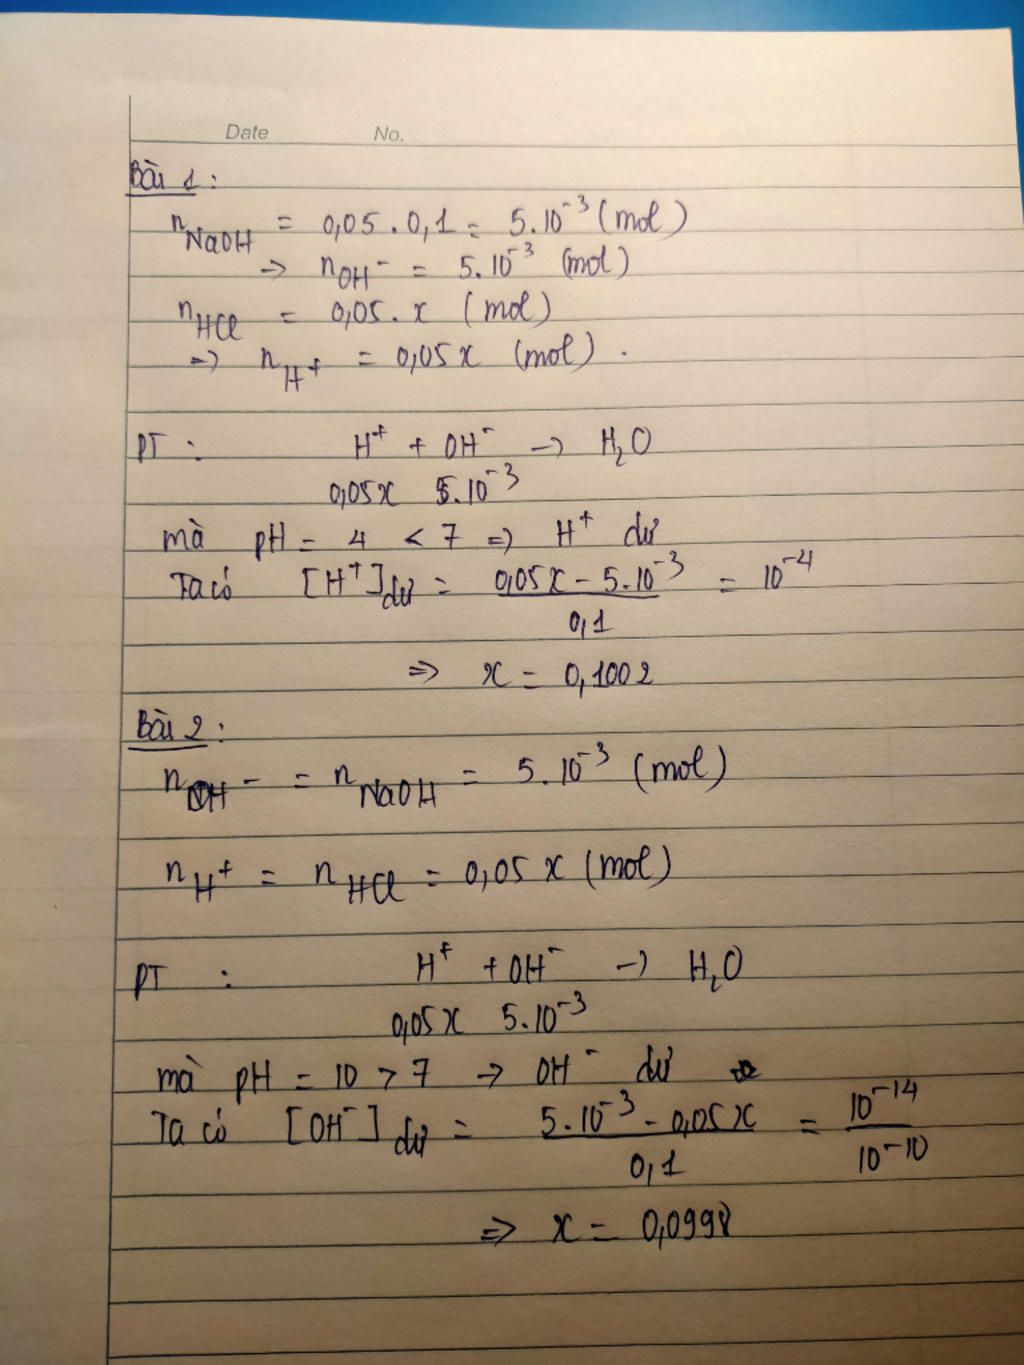 Date No.
Bài 1 :
nNaOH = 0,05 . 0,1 = 5.10⁻³ (mol)
→ nOH⁻ = 5.10⁻³ (mol)
nHCl = 0,05. x (mol)
=> nH⁺ = 0,05x (mol) .
PT : H⁺ + OH⁻ → H₂O
0,05x 5.10⁻³
mà pH = 4 < 7 => H⁺ dư
Ta có [H⁺]dư = (0,05x - 5.10⁻³)/0,1 = 10⁻⁴
=> x = 0,1002
Bài 2 :
nOH⁻ = nNaOH = 5.10⁻³ (mol)
nH⁺ = nHCl = 0,05 x (mol)
PT : H⁺ + OH⁻ → H₂O
0,05x 5.10⁻³
mà pH = 10 > 7 → OH⁻ dư
Ta có [OH⁻]dư = (5.10⁻³ - 0,05x)/0,1 = 10⁻¹⁴/10⁻¹⁰
=> x = 0,0998